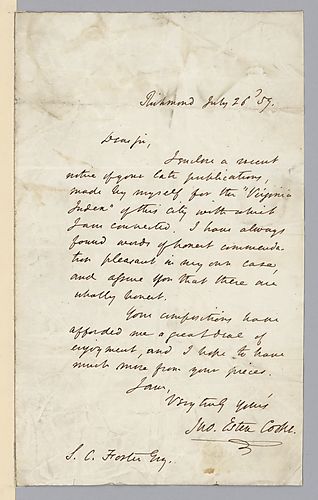 Richmond July 26' 59.
Dear Sir,
I enclose a recent
notice of your late publications,
made by myself for the "Virginia
Index" of this city with which
I am connected. I have always
found words of honest commenda-
tion pleasant in my own case,
and assure you that these are
wholly honest.
Your compositions have
afforded me a great deal of
enjoyment, and I hope to have
much more from your pieces.
I am,
Very truly yours
Jno. Esten Cooke.
S. C. Foster Esq.